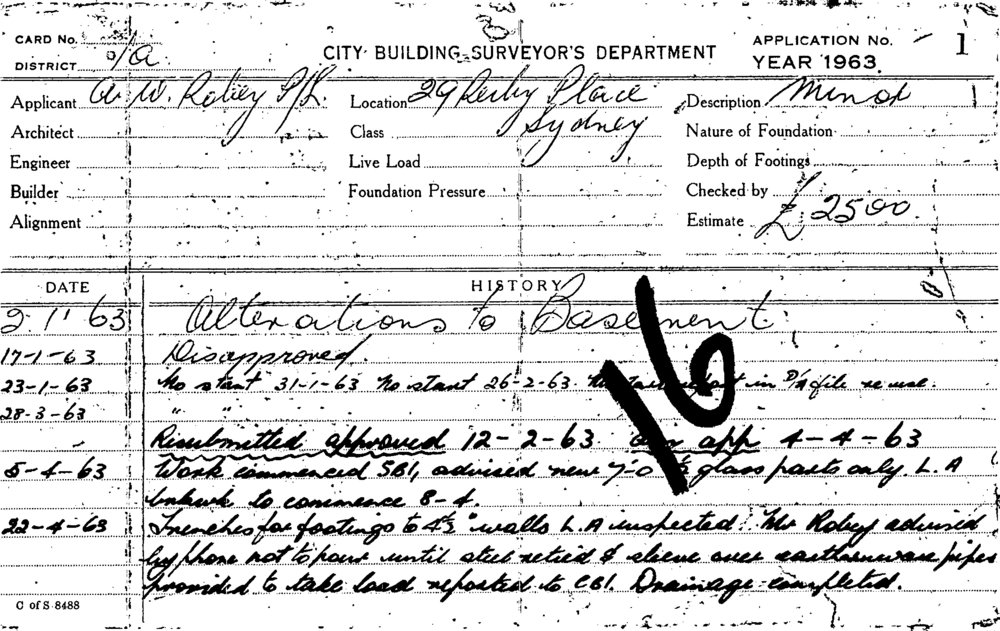 CARD No.
DISTRICT
CITY BUILDING SURVEYOR'S DEPARTMENT
APPLICATION No. 1
YEAR 1963
Applicant A. W. Robey P/L.
Location 29 Derby Place
Sydney
Description Minor
Architect
Class
Nature of Foundation
Engineer
Live Load
Depth of Footings
Builder
Foundation Pressure
Checked by
Alignment
Estimate £ 2500
DATE HISTORY
2-1-63 Alterations to Basement
17-1-63 Disapproved.
23-1-63 No start 31-1-63 No start 26-2-63. in file re use.
28-3-63 " "
Resubmitted approved 12-2-63 app 4-4-63
5-4-63 Work commenced SBI, advised new 7-0 glass parts only. L.A
to commence 8-4.
22-4-63 Trenches for footings to 4½" walls L.A inspected. Mr Robey advised
by phone not to pour until steel retied & sleeve over earthenware pipes
provided to take load reported to CBI. Drainage completed.
16
C of S 8488